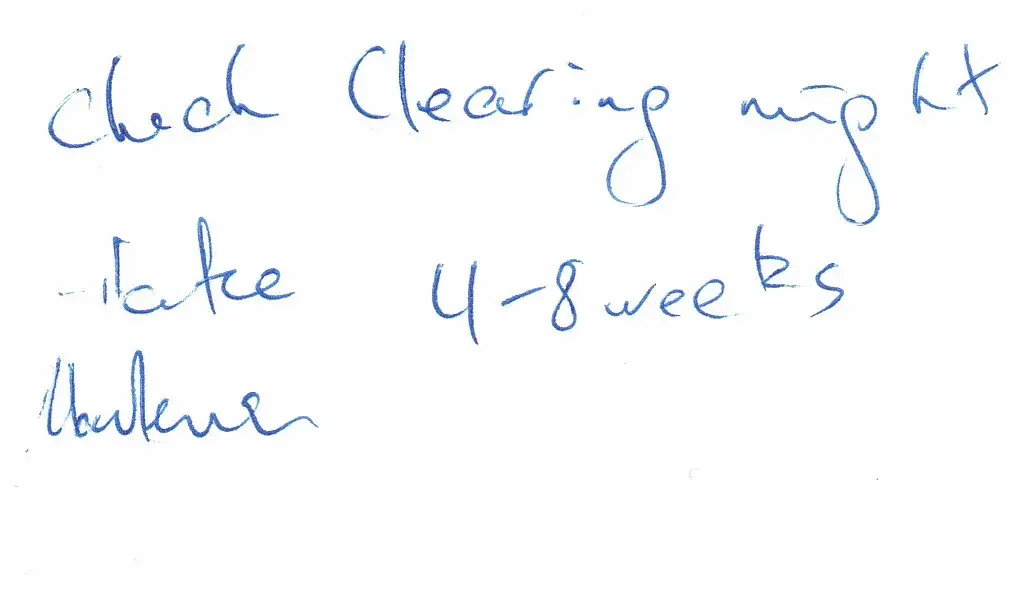 check Clearing might
take 4-8 weeks